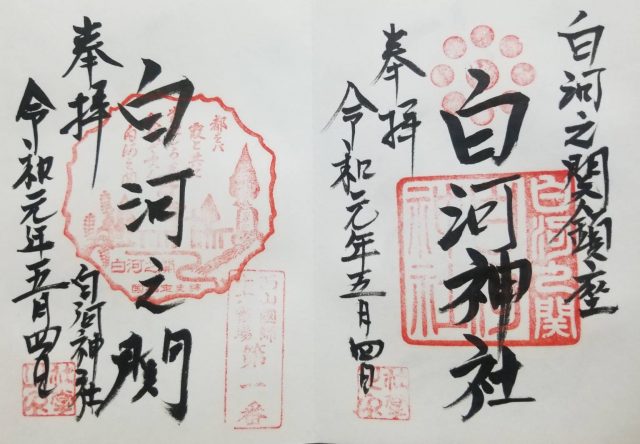 白河之関鎮座
白河神社
奉拝
令和元年五月四日
白河之関
白河之関
奉拝
令和元年五月四日
白河神社
都をば
白河之関
第一番